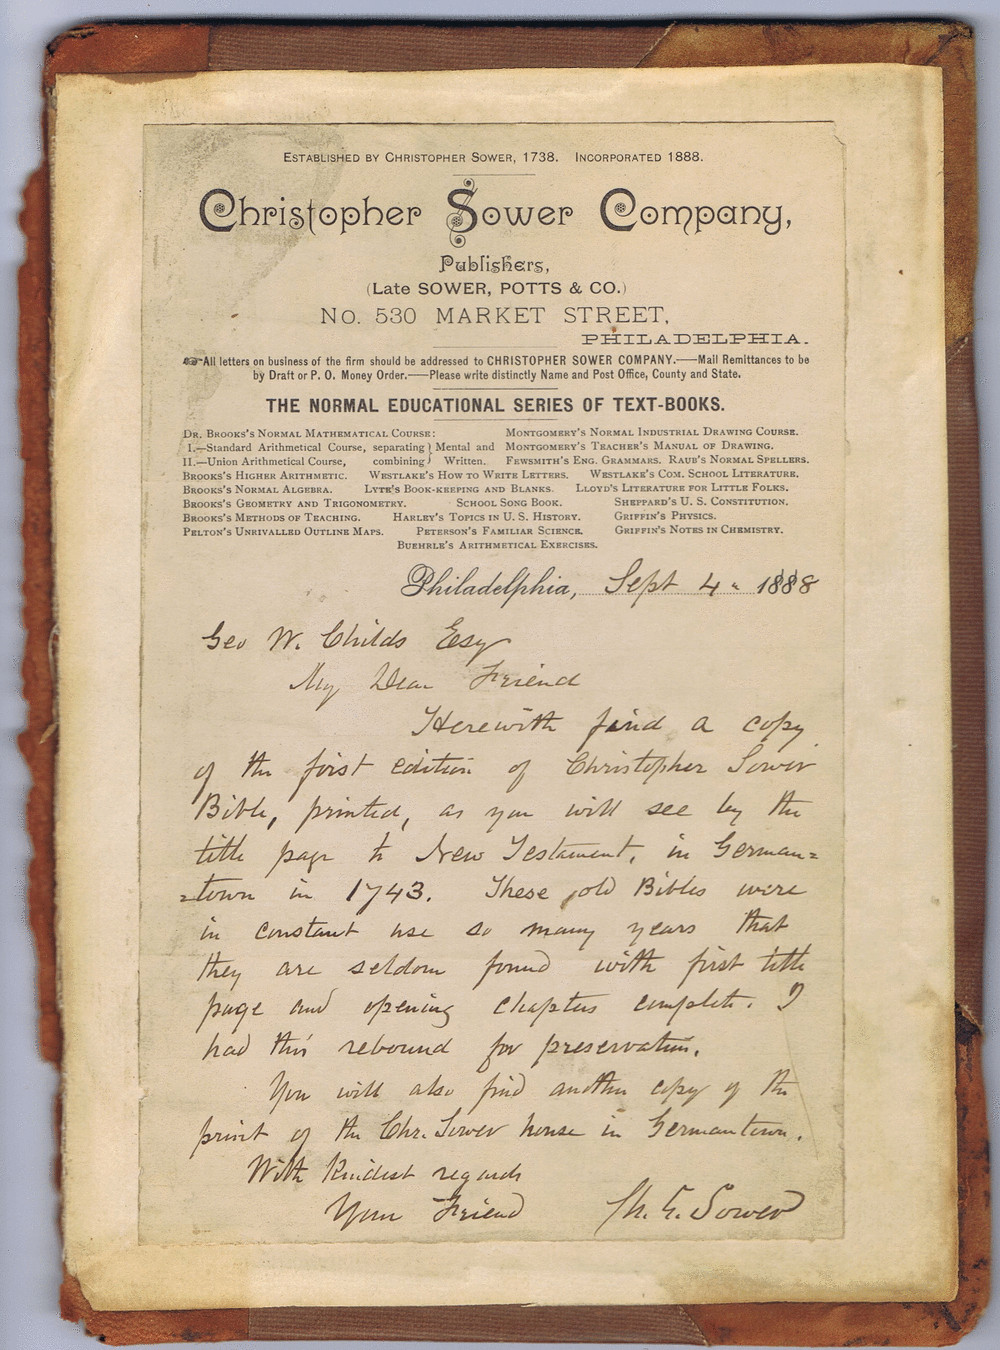 Established by Christopher Sower, 1738. Incorporated 1888.
Christopher Sower Company,
Publishers,
(Late SOWER, POTTS & CO.)
No. 530 MARKET STREET,
PHILADELPHIA.
☞All letters on business of the firm should be addressed to CHRISTOPHER SOWER COMPANY.—Mail Remittances to be
by Draft or P. O. Money Order.—Please write distinctly Name and Post Office, County and State.
THE NORMAL EDUCATIONAL SERIES OF TEXT-BOOKS.
Dr. Brooks's Normal Mathematical Course: Montgomery's Normal Industrial Drawing Course.
I.—Standard Arithmetical Course, separating } Mental and Montgomery's Teacher's Manual of Drawing.
II.—Union Arithmetical Course, combining } Written. Fewsmith's Eng. Grammars. Raub's Normal Spellers.
Brooks's Higher Arithmetic. Westlake's How to Write Letters. Westlake's Com. School Literature.
Brooks's Normal Algebra. Lyte's Book-keeping and Blanks. Lloyd's Literature for Little Folks.
Brooks's Geometry and Trigonometry. School Song Book. Sheppard's U. S. Constitution.
Brooks's Methods of Teaching. Harley's Topics in U. S. History. Griffin's Physics.
Pelton's Unrivalled Outline Maps. Peterson's Familiar Science. Griffin's Notes in Chemistry.
Buehrle's Arithmetical Exercises.
Philadelphia, Sept 4" 1888
Geo W. Childs Esq
My Dear Friend
Herewith find a copy
of the first edition of Christopher Sower
Bible, printed, as you will see by the
title page to New Testament, in German=
=town in 1743. These old Bibles were
in constant use so many years that
they are seldom found with first title
page and opening chapters complete. I
had this rebound for preservation.
You will also find another copy of the
print of the Chr. Sower house in Germantown.
With kindest regards
Your Friend Ch. G. Sower